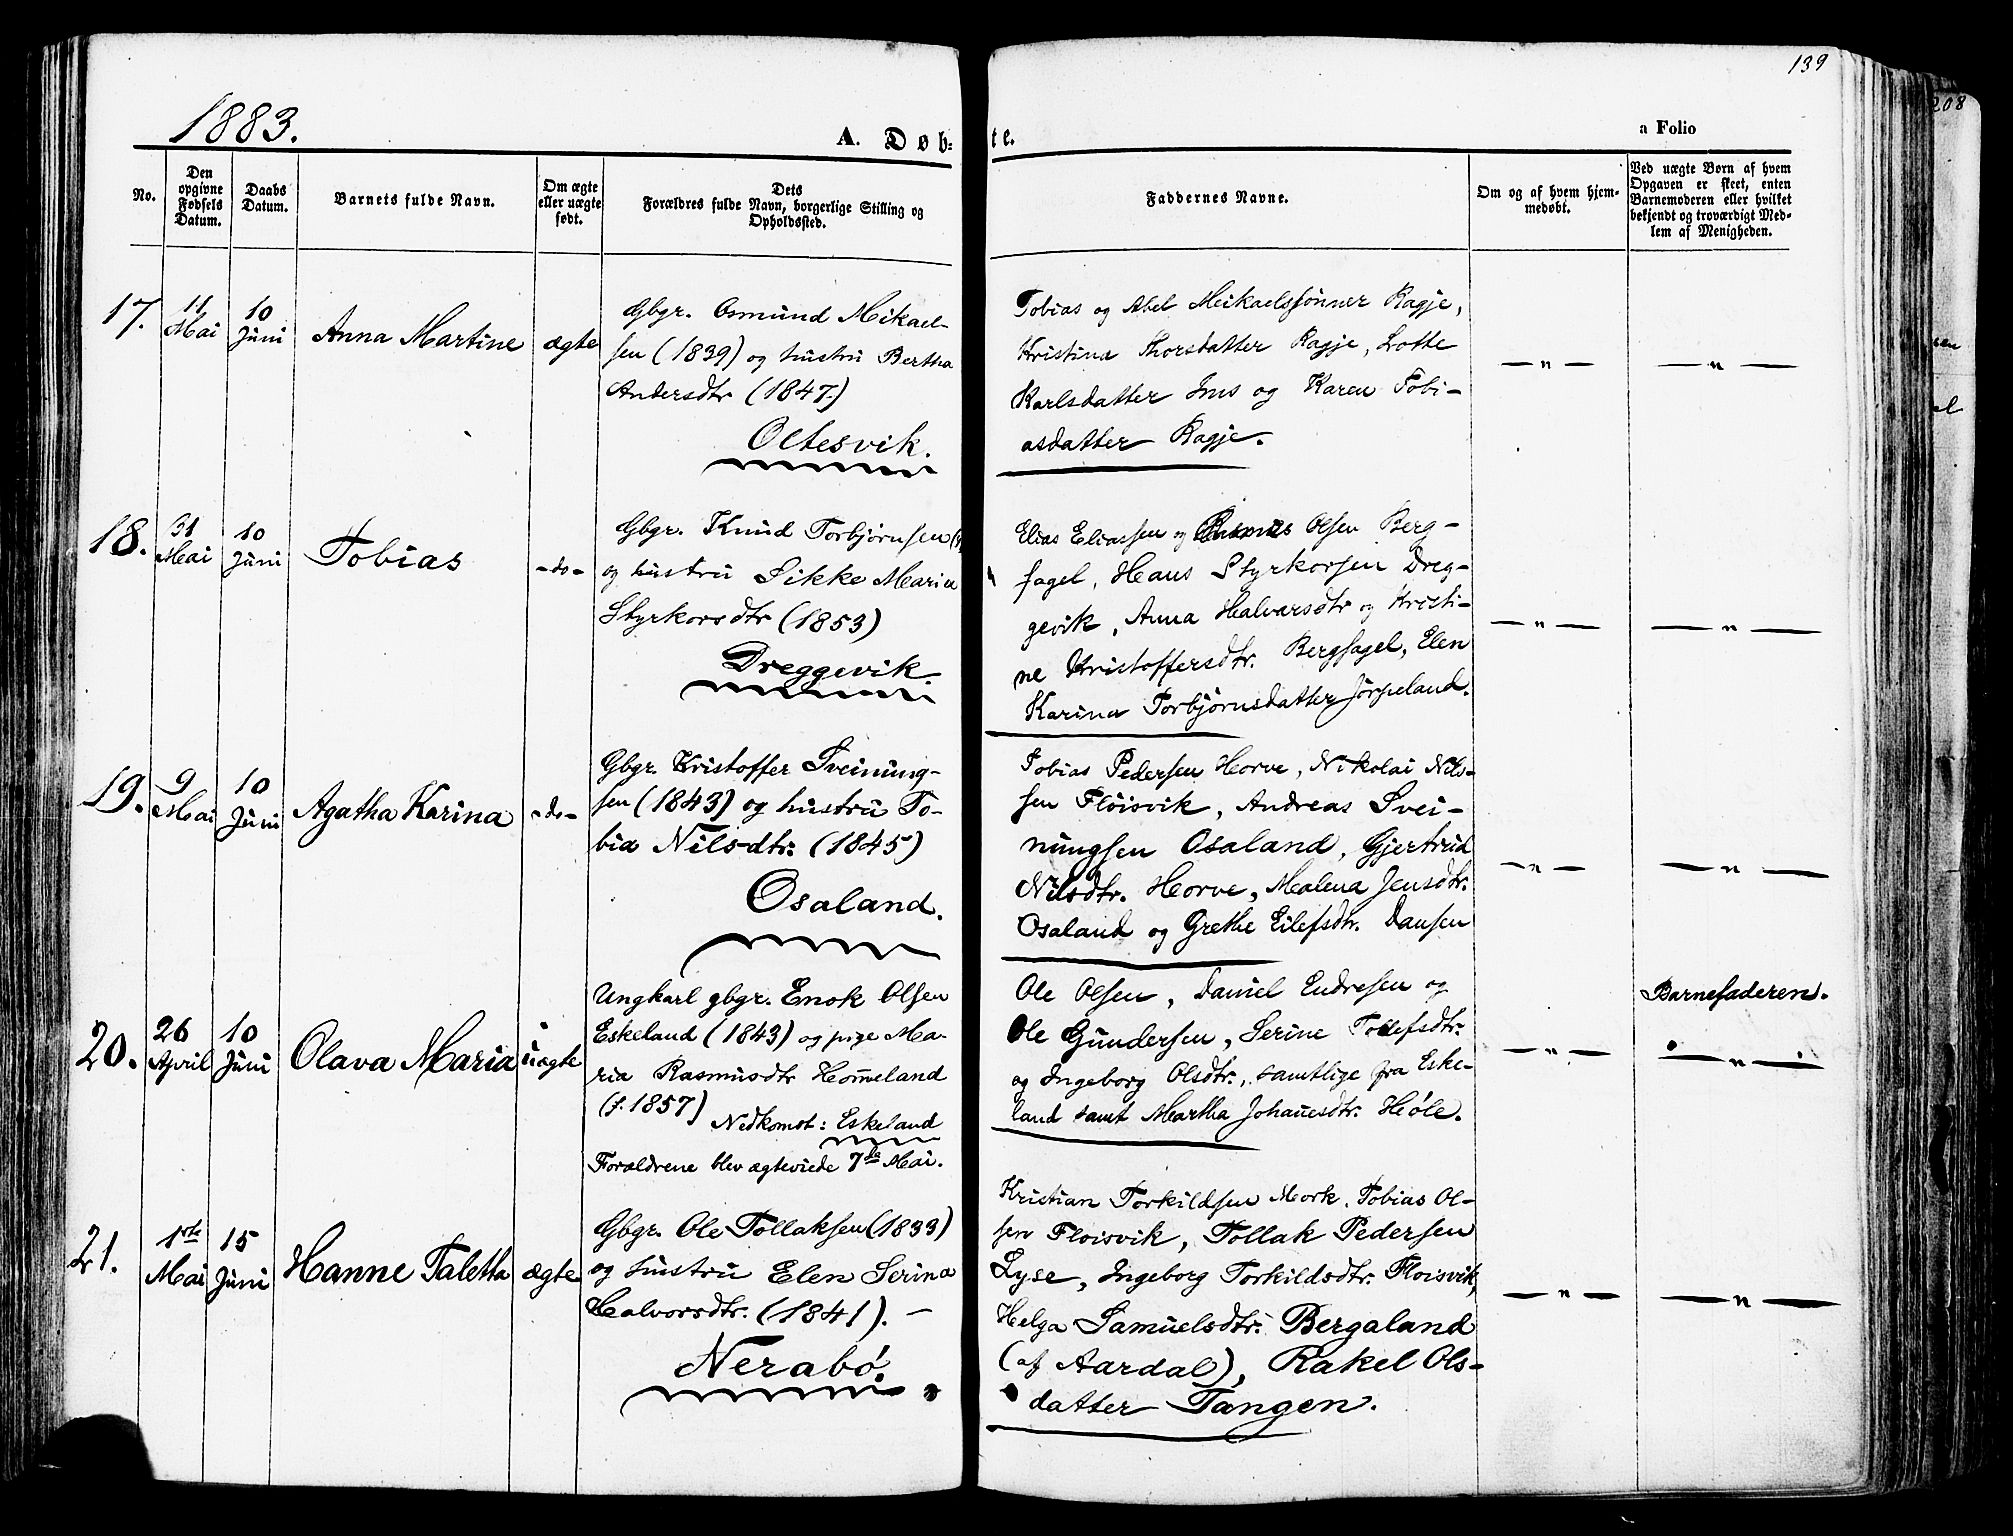 139
208
1883.
A. Døb-
te.
a Folio
No.
Den opgivne Fødsels Datum.
Daabs Datum.
Barnets fulde Navn.
Om ægte eller uægte født.
Dets Forældres fulde Navn, borgerlige Stilling og Opholdssted.
Faddernes Navne.
Om og af hvem hjemmedøbt.
Ved uægte Børn af hvem Opgaven er skeet, enten Barnemoderen eller hvilket bekjendt og troværdigt Medlem af Menigheden.
17.
11 Mai
10 Juni
Anna Martine
ægte
Gbgr. Osmund Mikael-
sen (1839) og hustru Bertha
Andersdtr (1847.)
Oltesvik.
Tobias og Abel Meikaelssønner Ragje,
Kristina Thorsdatter Ragje, Lotte
Karlsdatter Ims og Karen Tobi-
asdatter Ragje.
— " —
— " —
18.
31 Mai
10 Juni
Tobias
- do -
Gbgr. Knud Torbjørnsen
og hustru Sikke Maria
Styrkorsdtr (1853)
Dreggevik.
Elias Eliassen og Rasmus Olsen Berg-
sagel, Hans Styrkorsen Dreg-
gevik, Anna Halvarsdtr og Kristi-
ne Kristoffersdtr. Bergsagel, Elen
Karina Torbjørnsdatter Jørpeland.
— " —
— " —
19.
9 Mai
10 Juni
Agatha Karina
- do -
Gbgr. Kristoffer Sveinung-
sen (1843) og hustru To-
bia Nilsdtr. (1845)
Osaland.
Tobias Pedersen Horve, Nikolai Nils-
sen Fløisvik, Andreas Svei-
nungsen Osaland, Gjertrud
Nilsdtr. Horve, Malena Jensdtr.
Osaland og Grethe Eilefsdtr. Dansen
— " —
— " —
20.
26 April
10 Juni
Olava Maria
uægte
Ungkarl gbgr. Enok Olsen
Eskeland (1843) og pige Ma-
ria Rasmusdtr Hommeland
(f. 1857) Nedkomst: Eskeland
Forældrene blev ægteviede 7de Mai.
Ole Olsen, Daniel Endresen og
Ole Gundersen, Serine Tollefsdtr.
og Ingeborg Olsdtr., samtlige fra Eske-
land samt Martha Johannesdtr. Høle.
— " —
Barnefaderen.
— " —
21.
1ste Mai
15 Juni
Hanne Taletta
ægte
Gbgr. Ole Tollaksen (1833)
og hustru Elen Serina
Halvorsdtr. (1841). —
Nerabø.
Kristian Torkildsen Mork, Tobias Ol-
sen Floisvik, Tollak Pedersen
Lyse, Ingeborg Torkildsdtr. Floisvik,
Helga Samuelsdtr. Bergaland
(af Aardal), Rakel Ols-
datter Tangen.
— " —
— " —